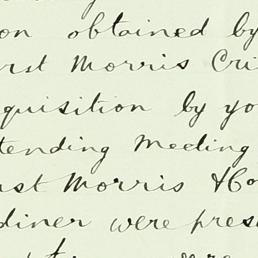 on obtained by
rst Morris Cri
quisition by yo
tending Meeting
ust Morris & Co
diner were pres